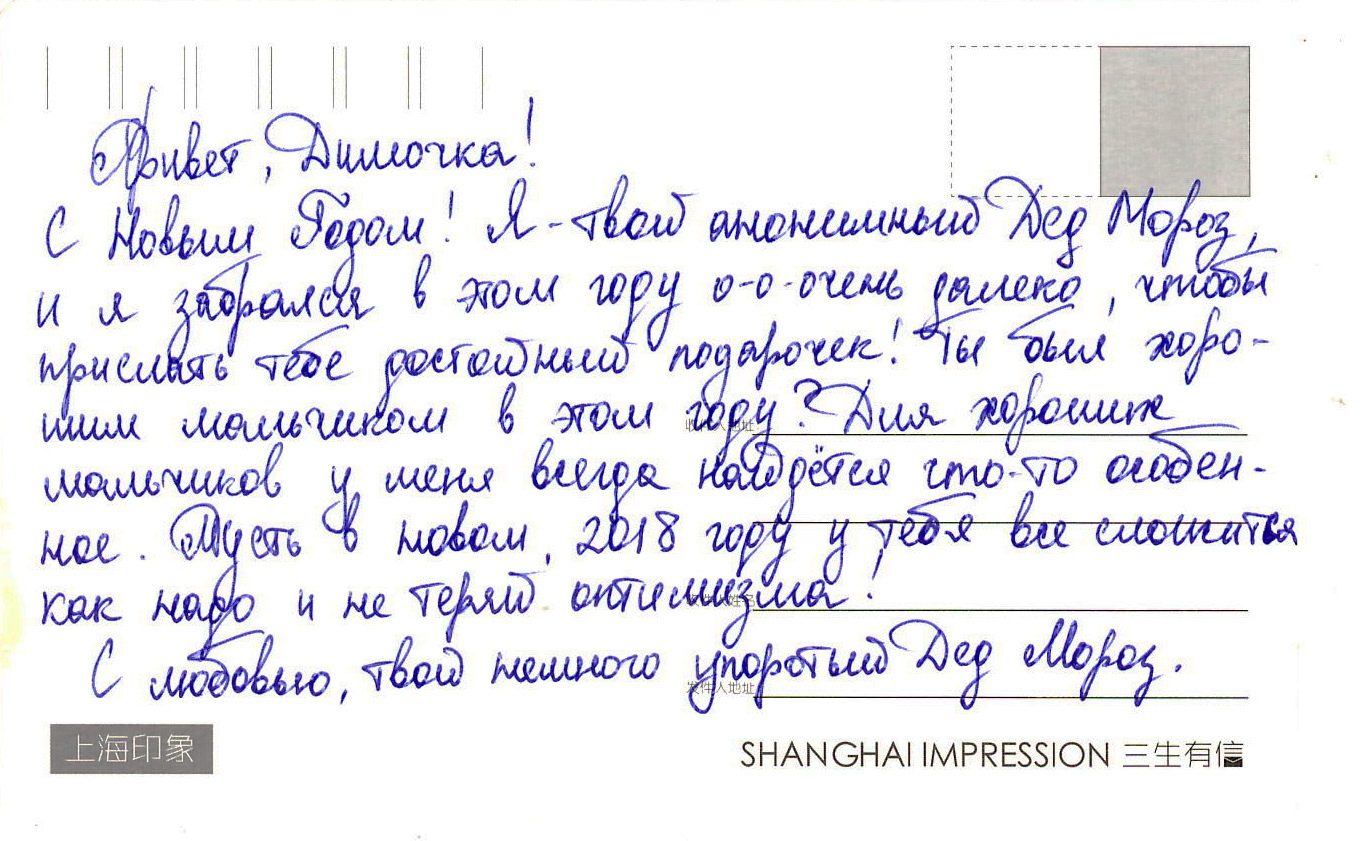 Привет, Димочка!
С Новым Годом! Я - твой анонимный Дед Мороз,
и я забрался в этом году о-о-очень далеко, чтобы
прислать тебе достойный подарочек! Ты был хоро-
шим мальчиком в этом году? Для хороших
收件人地址
мальчиков у меня всегда найдётся что-то особен-
ное. Пусть в новом, 2018 году у тебя все сложится
как надо и не теряй оптимизма!
С любовью, твой немного упоротый Дед Мороз.
发件人地址
上海印象
SHANGHAI IMPRESSION 三生有信